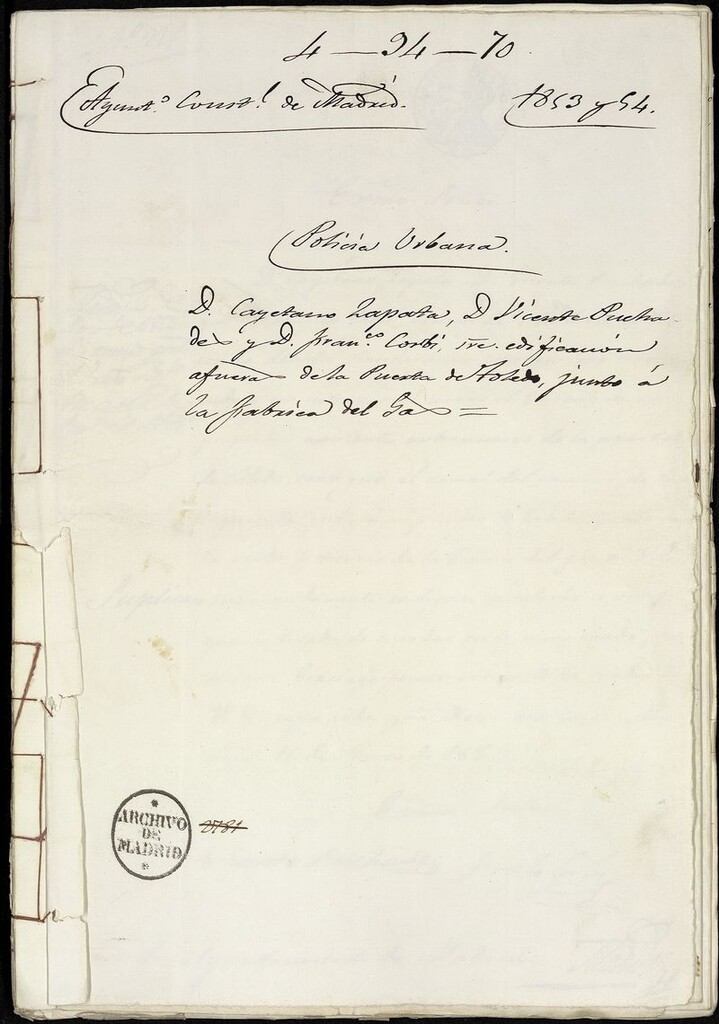 4 — 94 — 70.
Ayunt.º Const.l de Madrid. 1853 y 54.
Policia Urbana.
D. Cayetano Zapata, D Vicente Pucha-
des y D. Fran.co Corbi, sre. edificacion
afueras de la Puerta de Toledo, junto á
la fabrica del Gas =
ARCHIVO
DE
MADRID